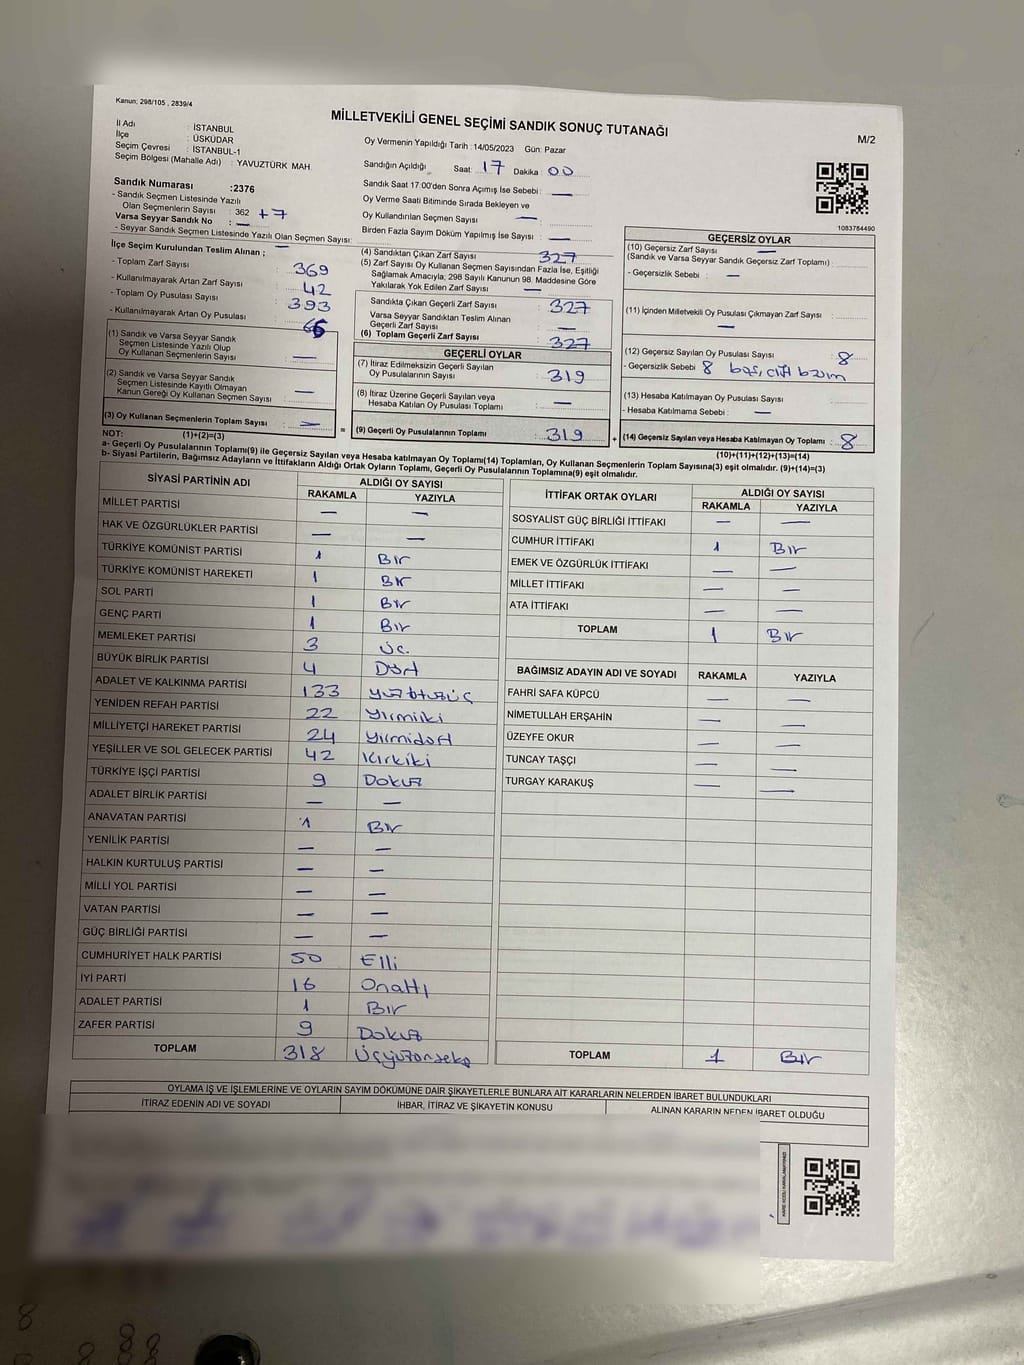 Kanun; 298/105 , 2839/4
MİLLETVEKİLİ GENEL SEÇİMİ SANDIK SONUÇ TUTANAĞI
M/2
İl Adı : İSTANBUL
İlçe : ÜSKÜDAR
Seçim Çevresi : İSTANBUL-1
Seçim Bölgesi (Mahalle Adı) : YAVUZTÜRK MAH.
Oy Vermenin Yapıldığı Tarih : 14/05/2023 Gün: Pazar
Sandığın Açıldığı Saat: 17 Dakika : 00
Sandık Saat 17:00'den Sonra Açımış İse Sebebi : —
Oy Verme Saati Bitiminde Sırada Bekleyen ve
Oy Kullandırılan Seçmen Sayısı —
Birden Fazla Sayım Döküm Yapılmış İse Sayısı : —
Sandık Numarası :2376
- Sandık Seçmen Listesinde Yazılı
Olan Seçmenlerin Sayısı : 362 +7
Varsa Seyyar Sandık No : —
- Seyyar Sandık Seçmen Listesinde Yazılı Olan Seçmen Sayısı: —
1083784490
İlçe Seçim Kurulundan Teslim Alınan ;
- Toplam Zarf Sayısı : 369
- Kullanılmayarak Artan Zarf Sayısı : 42
- Toplam Oy Pusulası Sayısı : 393
- Kullanılmayarak Artan Oy Pusulası : 66
(1) Sandık ve Varsa Seyyar Sandık
Seçmen Listesinde Yazılı Olup
Oy Kullanan Seçmenlerin Sayısı : —
(2) Sandık ve Varsa Seyyar Sandık
Seçmen Listesinde Kayıtlı Olmayan
Kanun Gereği Oy Kullanan Seçmen Sayısı : —
(3) Oy Kullanan Seçmenlerin Toplam Sayısı : —
(1)+(2)=(3)
(4) Sandıktan Çıkan Zarf Sayısı : 327
(5) Zarf Sayısı Oy Kullanan Seçmen Sayısından Fazla İse, Eşitliği
Sağlamak Amacıyla; 298 Sayılı Kanunun 98. Maddesine Göre
Yakılarak Yok Edilen Zarf Sayısı : —
Sandıkta Çıkan Geçerli Zarf Sayısı : 327
Varsa Seyyar Sandıktan Teslim Alınan
Geçerli Zarf Sayısı : —
(6) Toplam Geçerli Zarf Sayısı : 327
GEÇERLİ OYLAR
(7) İtiraz Edilmeksizin Geçerli Sayılan
Oy Pusulalarının Sayısı : 319
(8) İtiraz Üzerine Geçerli Sayılan veya
Hesaba Katılan Oy Pusulası Toplamı : —
= (9) Geçerli Oy Pusulalarının Toplamı : 319 +
GEÇERSİZ OYLAR
(10) Geçersiz Zarf Sayısı —
(Sandık ve Varsa Seyyar Sandık Geçersiz Zarf Toplamı) :
- Geçersizlik Sebebi : —
(11) İçinden Milletvekili Oy Pusulası Çıkmayan Zarf Sayısı : —
(12) Geçersiz Sayılan Oy Pusulası Sayısı : 8
- Geçersizlik Sebebi 8
(13) Hesaba Katılmayan Oy Pusulası Sayısı :
- Hesaba Katılmama Sebebi : —
(14) Geçersiz Sayılan veya Hesaba Katılmayan Oy Toplamı : 8
(10)+(11)+(12)+(13)=(14)
NOT:
a- Geçerli Oy Pusulalarının Toplamı(9) ile Geçersiz Sayılan veya Hesaba katılmayan Oy Toplamı(14) Toplamları, Oy Kullanan Seçmenlerin Toplam Sayısına(3) eşit olmalıdır. (9)+(14)=(3)
b- Siyasi Partilerin, Bağımsız Adayların ve İttifakların Aldığı Ortak Oyların Toplamı, Geçerli Oy Pusulalarının Toplamına(9) eşit olmalıdır.
SİYASİ PARTİNİN ADI ALDIĞI OY SAYISI
RAKAMLA YAZIYLA
MİLLET PARTİSİ — —
HAK VE ÖZGÜRLÜKLER PARTİSİ — —
TÜRKİYE KOMÜNİST PARTİSİ 1 Bir
TÜRKİYE KOMÜNİST HAREKETİ 1 Bir
SOL PARTİ 1 Bir
GENÇ PARTİ 1 Bir
MEMLEKET PARTİSİ 3 Üç.
BÜYÜK BİRLİK PARTİSİ 4 Dört
ADALET VE KALKINMA PARTİSİ 133 yüzotuzüç
YENİDEN REFAH PARTİSİ 22 yirmiiki
MİLLİYETÇİ HAREKET PARTİSİ 24 yirmidört
YEŞİLLER VE SOL GELECEK PARTİSİ 42 kırkiki
TÜRKİYE İŞÇİ PARTİSİ 9 Dokuz
ADALET BİRLİK PARTİSİ — —
ANAVATAN PARTİSİ 1 Bir
YENİLİK PARTİSİ — —
HALKIN KURTULUŞ PARTİSİ — —
MİLLİ YOL PARTİSİ — —
VATAN PARTİSİ — —
GÜÇ BİRLİĞİ PARTİSİ — —
CUMHURİYET HALK PARTİSİ 50 Elli
İYİ PARTİ 16 Onaltı
ADALET PARTİSİ 1 Bir
ZAFER PARTİSİ 9 Dokuz
TOPLAM 318 Üçyüzonsekz
İTTİFAK ORTAK OYLARI ALDIĞI OY SAYISI
RAKAMLA YAZIYLA
SOSYALİST GÜÇ BİRLİĞİ İTTİFAKI — —
CUMHUR İTTİFAKI 1 Bir
EMEK VE ÖZGÜRLÜK İTTİFAKI — —
MİLLET İTTİFAKI — —
ATA İTTİFAKI — —
TOPLAM 1 Bir
BAĞIMSIZ ADAYIN ADI VE SOYADI RAKAMLA YAZIYLA
FAHRİ SAFA KÜPCÜ — —
NİMETULLAH ERŞAHİN — —
ÜZEYFE OKUR — —
TUNCAY TAŞÇI — —
TURGAY KARAKUŞ — —
TOPLAM 1 Bir
OYLAMA İŞ VE İŞLEMLERİNE VE OYLARIN SAYIM DÖKÜMÜNE DAİR ŞİKAYETLERLE BUNLARA AİT KARARLARIN NELERDEN İBARET BULUNDUKLARI
İTİRAZ EDENİN ADI VE SOYADI İHBAR, İTİRAZ VE ŞİKAYETİN KONUSU ALINAN KARARIN NEDEN İBARET OLDUĞU
8
8 8
8 8